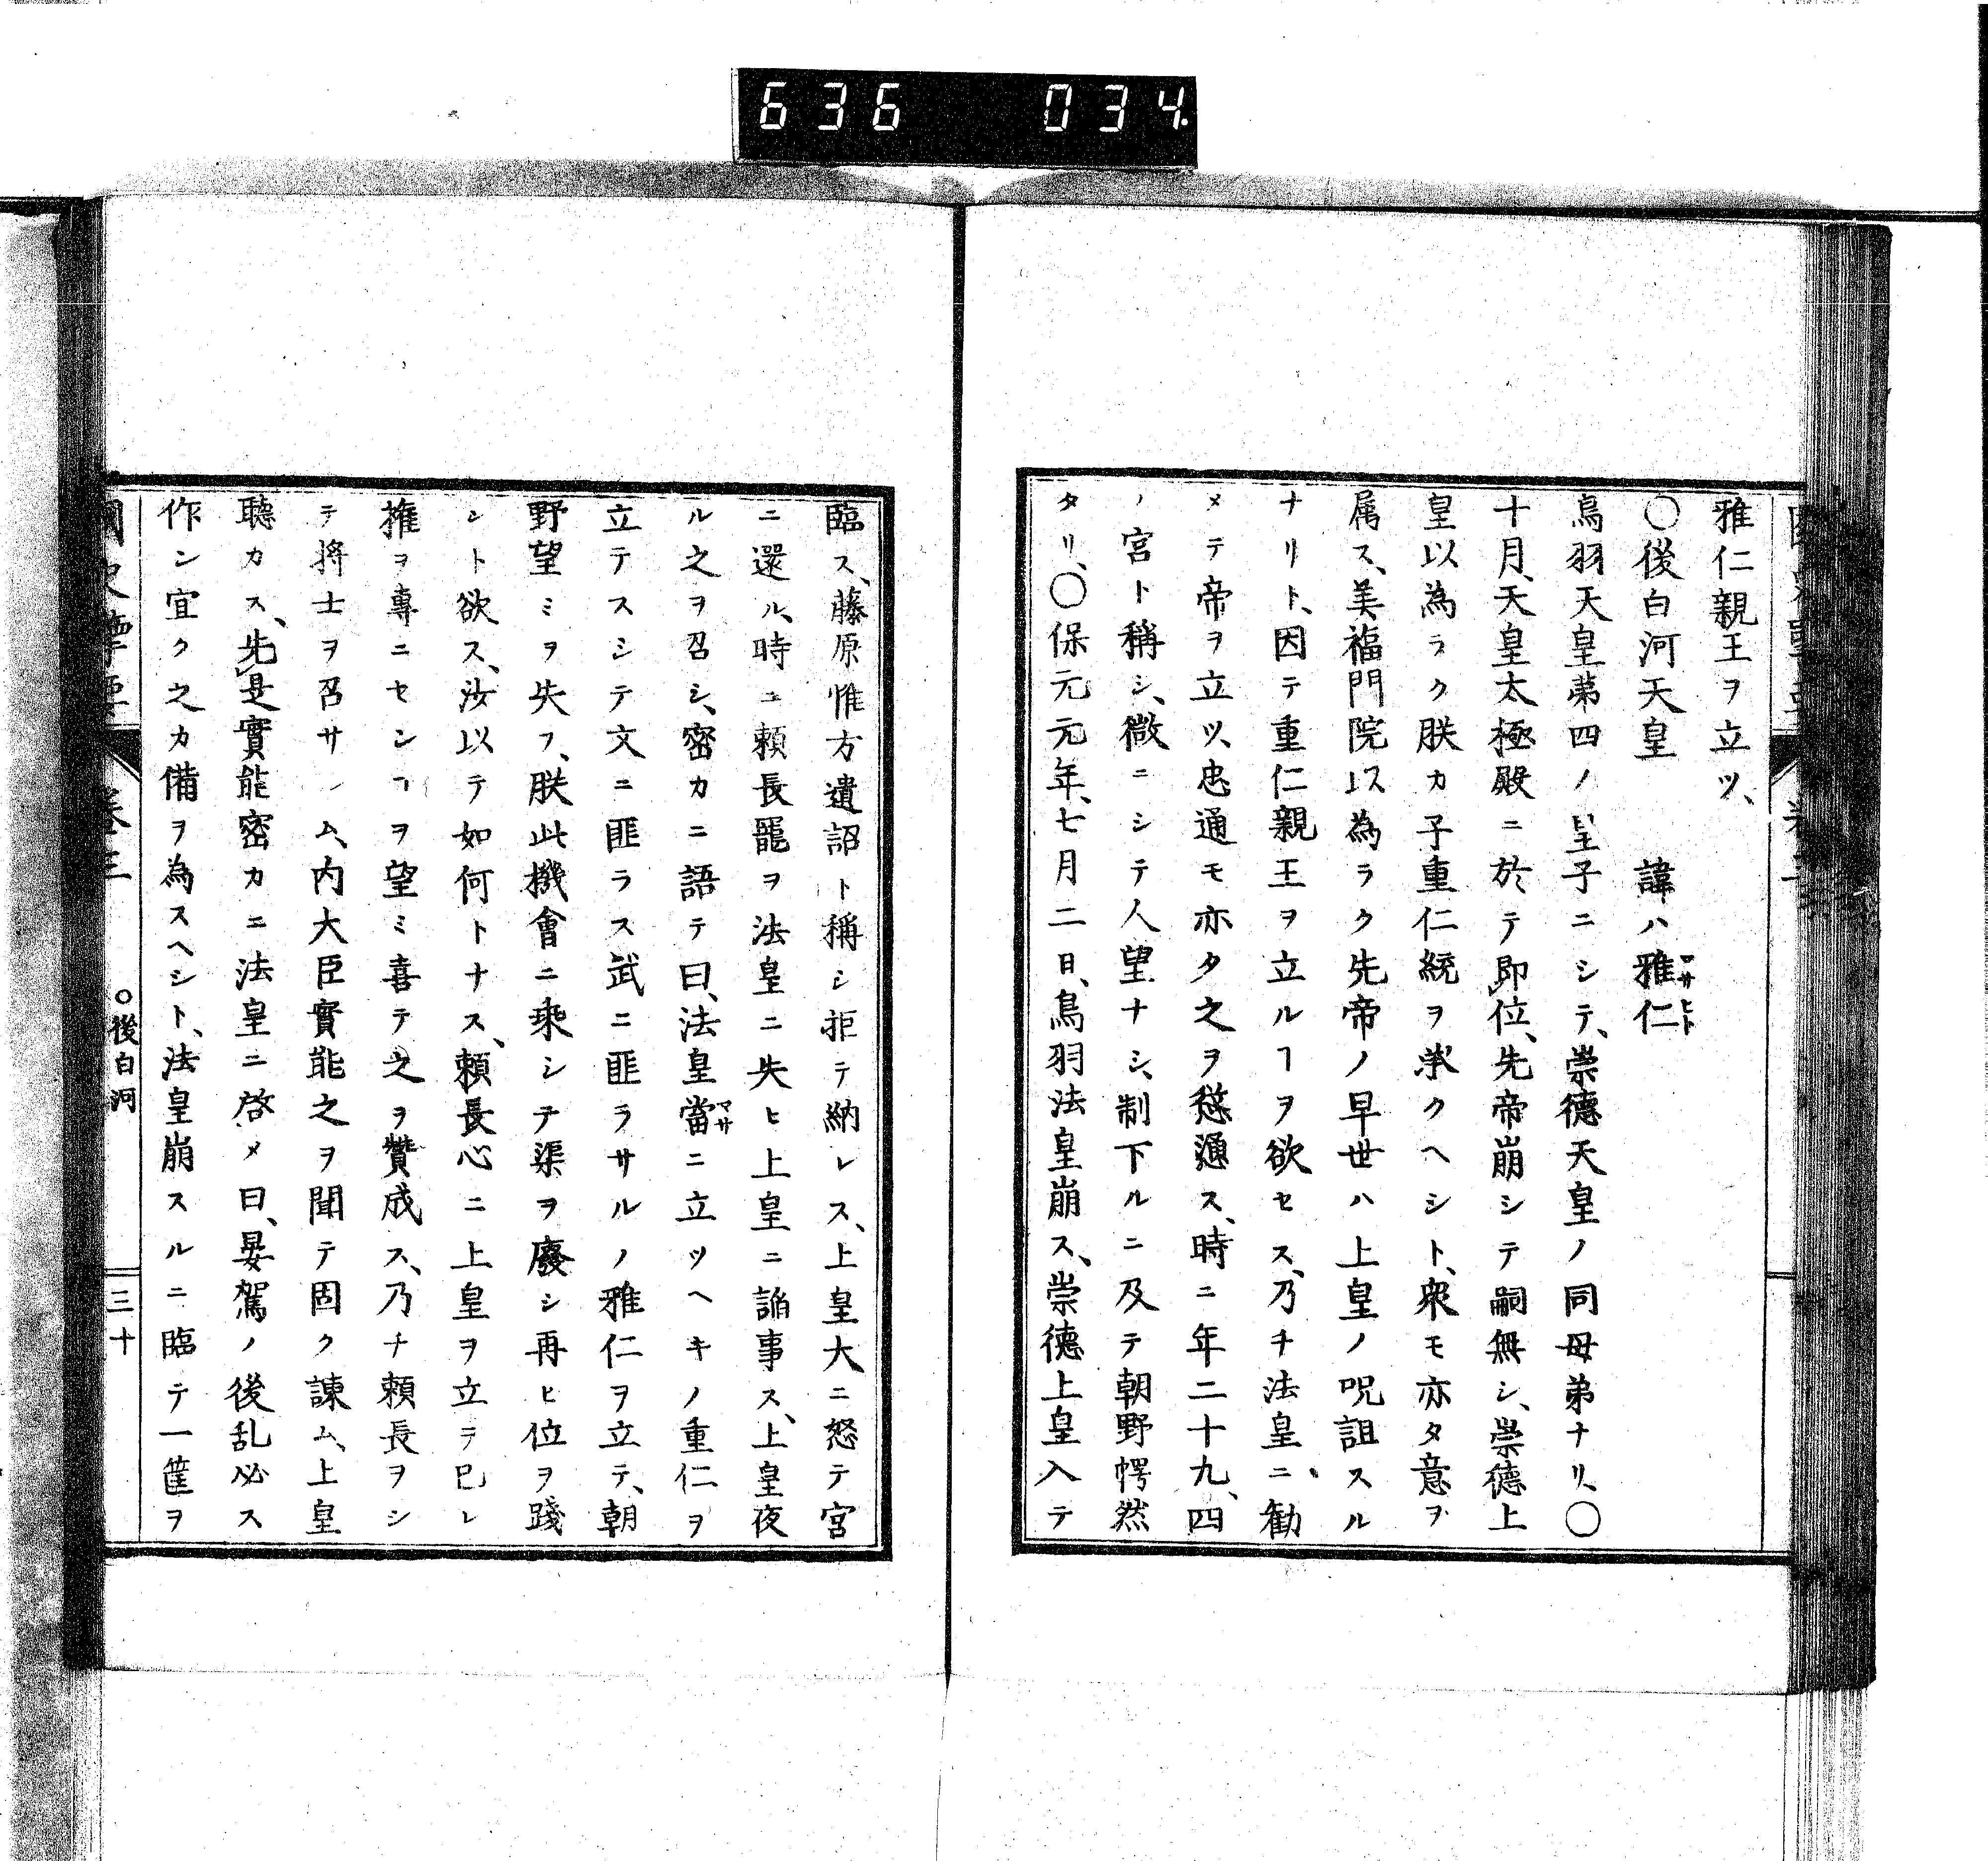 636 034.
雅仁親王ヲ立ツ、
〇後白河天皇 諱ハ雅仁
マサヒト
鳥羽天皇第四ノ皇子ニシテ、崇德天皇ノ同母弟ナリ、〇
十月、天皇太極殿ニ於テ即位、先帝崩シテ嗣無シ、崇德上
皇以為ラク朕カ子重仁統ヲ承クヘシト、衆モ亦タ意ヲ
属ス、美福門院以為ラク先帝ノ早世ハ上皇ノ呪詛スル
ナリト、因テ重仁親王ヲ立ルヿヲ欲セス、乃チ法皇ニ勧
メテ帝ヲ立ツ、忠通モ亦タ之ヲ慫慂ス、時ニ年二十九、四
ノ宮ト稱シ、微ニシテ人望ナシ、制下ルニ及テ朝野愕然
タリ、〇保元元年、七月二日、鳥羽法皇崩ス、崇德上皇入テ
臨ス、藤原惟方遺詔ト稱シ拒テ納レス、上皇大ニ怒テ宮
ニ還ル、時ニ賴長寵ヲ法皇ニ失ヒ上皇ニ諂事ス、上皇夜
ル之ヲ召シ、密カニ語テ曰、法皇當ニ立ツヘキノ重仁ヲ
マサ
立テスシテ文ニ匪ラス武ニ匪ラサルノ雅仁ヲ立テ、朝
野望ミヲ失フ、朕此機會ニ乘シテ渠ヲ廢シ再ヒ位ヲ踐
ント欲ス、汝以テ如何トナス、賴長心ニ上皇ヲ立テ己レ
権ヲ專ニセンヿヲ望ミ喜テ之ヲ贊成ス、乃チ賴長ヲシ
テ將士ヲ召サシム、内大臣實能之ヲ聞テ固ク諫ム、上皇
聽カス、先是實能密カニ法皇ニ啓メ曰、晏駕ノ後乱必ス
作ン宜ク之カ備ヲ為スヘシト、法皇崩スルニ臨テ一筐ヲ
卷三 〇後白河 三十